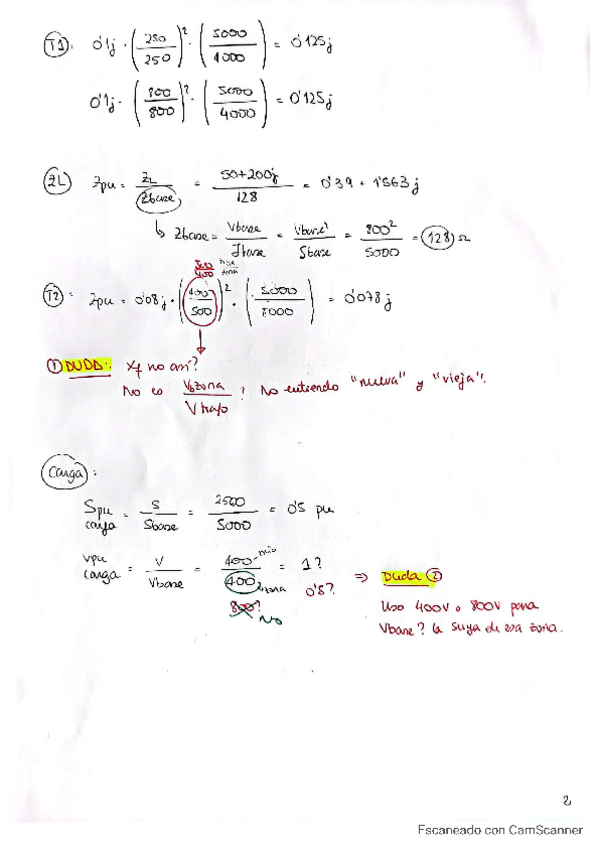 T1: 0'1j · (250/250)² · (5000/4000) = 0'125j
0'1j · (800/800)² · (5000/4000) = 0'125j
ZL Zpu = ZL/Zbase = 50+200j/128 = 0'39 + 1'563j
↳ Zbase = Vbase/Ibase = Vbase²/Sbase = 800²/5000 = 128 Ω
500/400 base/zona
T2: Zpu = 0'08j · (400/500)² · (5000/8000) = 0'078j
① DUDA: x q no así?
No es Vbzona/V trafo ? No entiendo "nueva" y "vieja".
Carga:
Spu carga = S/Sbase = 2500/5000 = 0'5 pu
Vpu carga = V/Vbase = 400/400 = 1?
zona 0'5? ⇒ Duda ②
800? No
Uso 400V o 800V para
Vbase? la suya de esa zona.
2
Escaneado con CamScanner